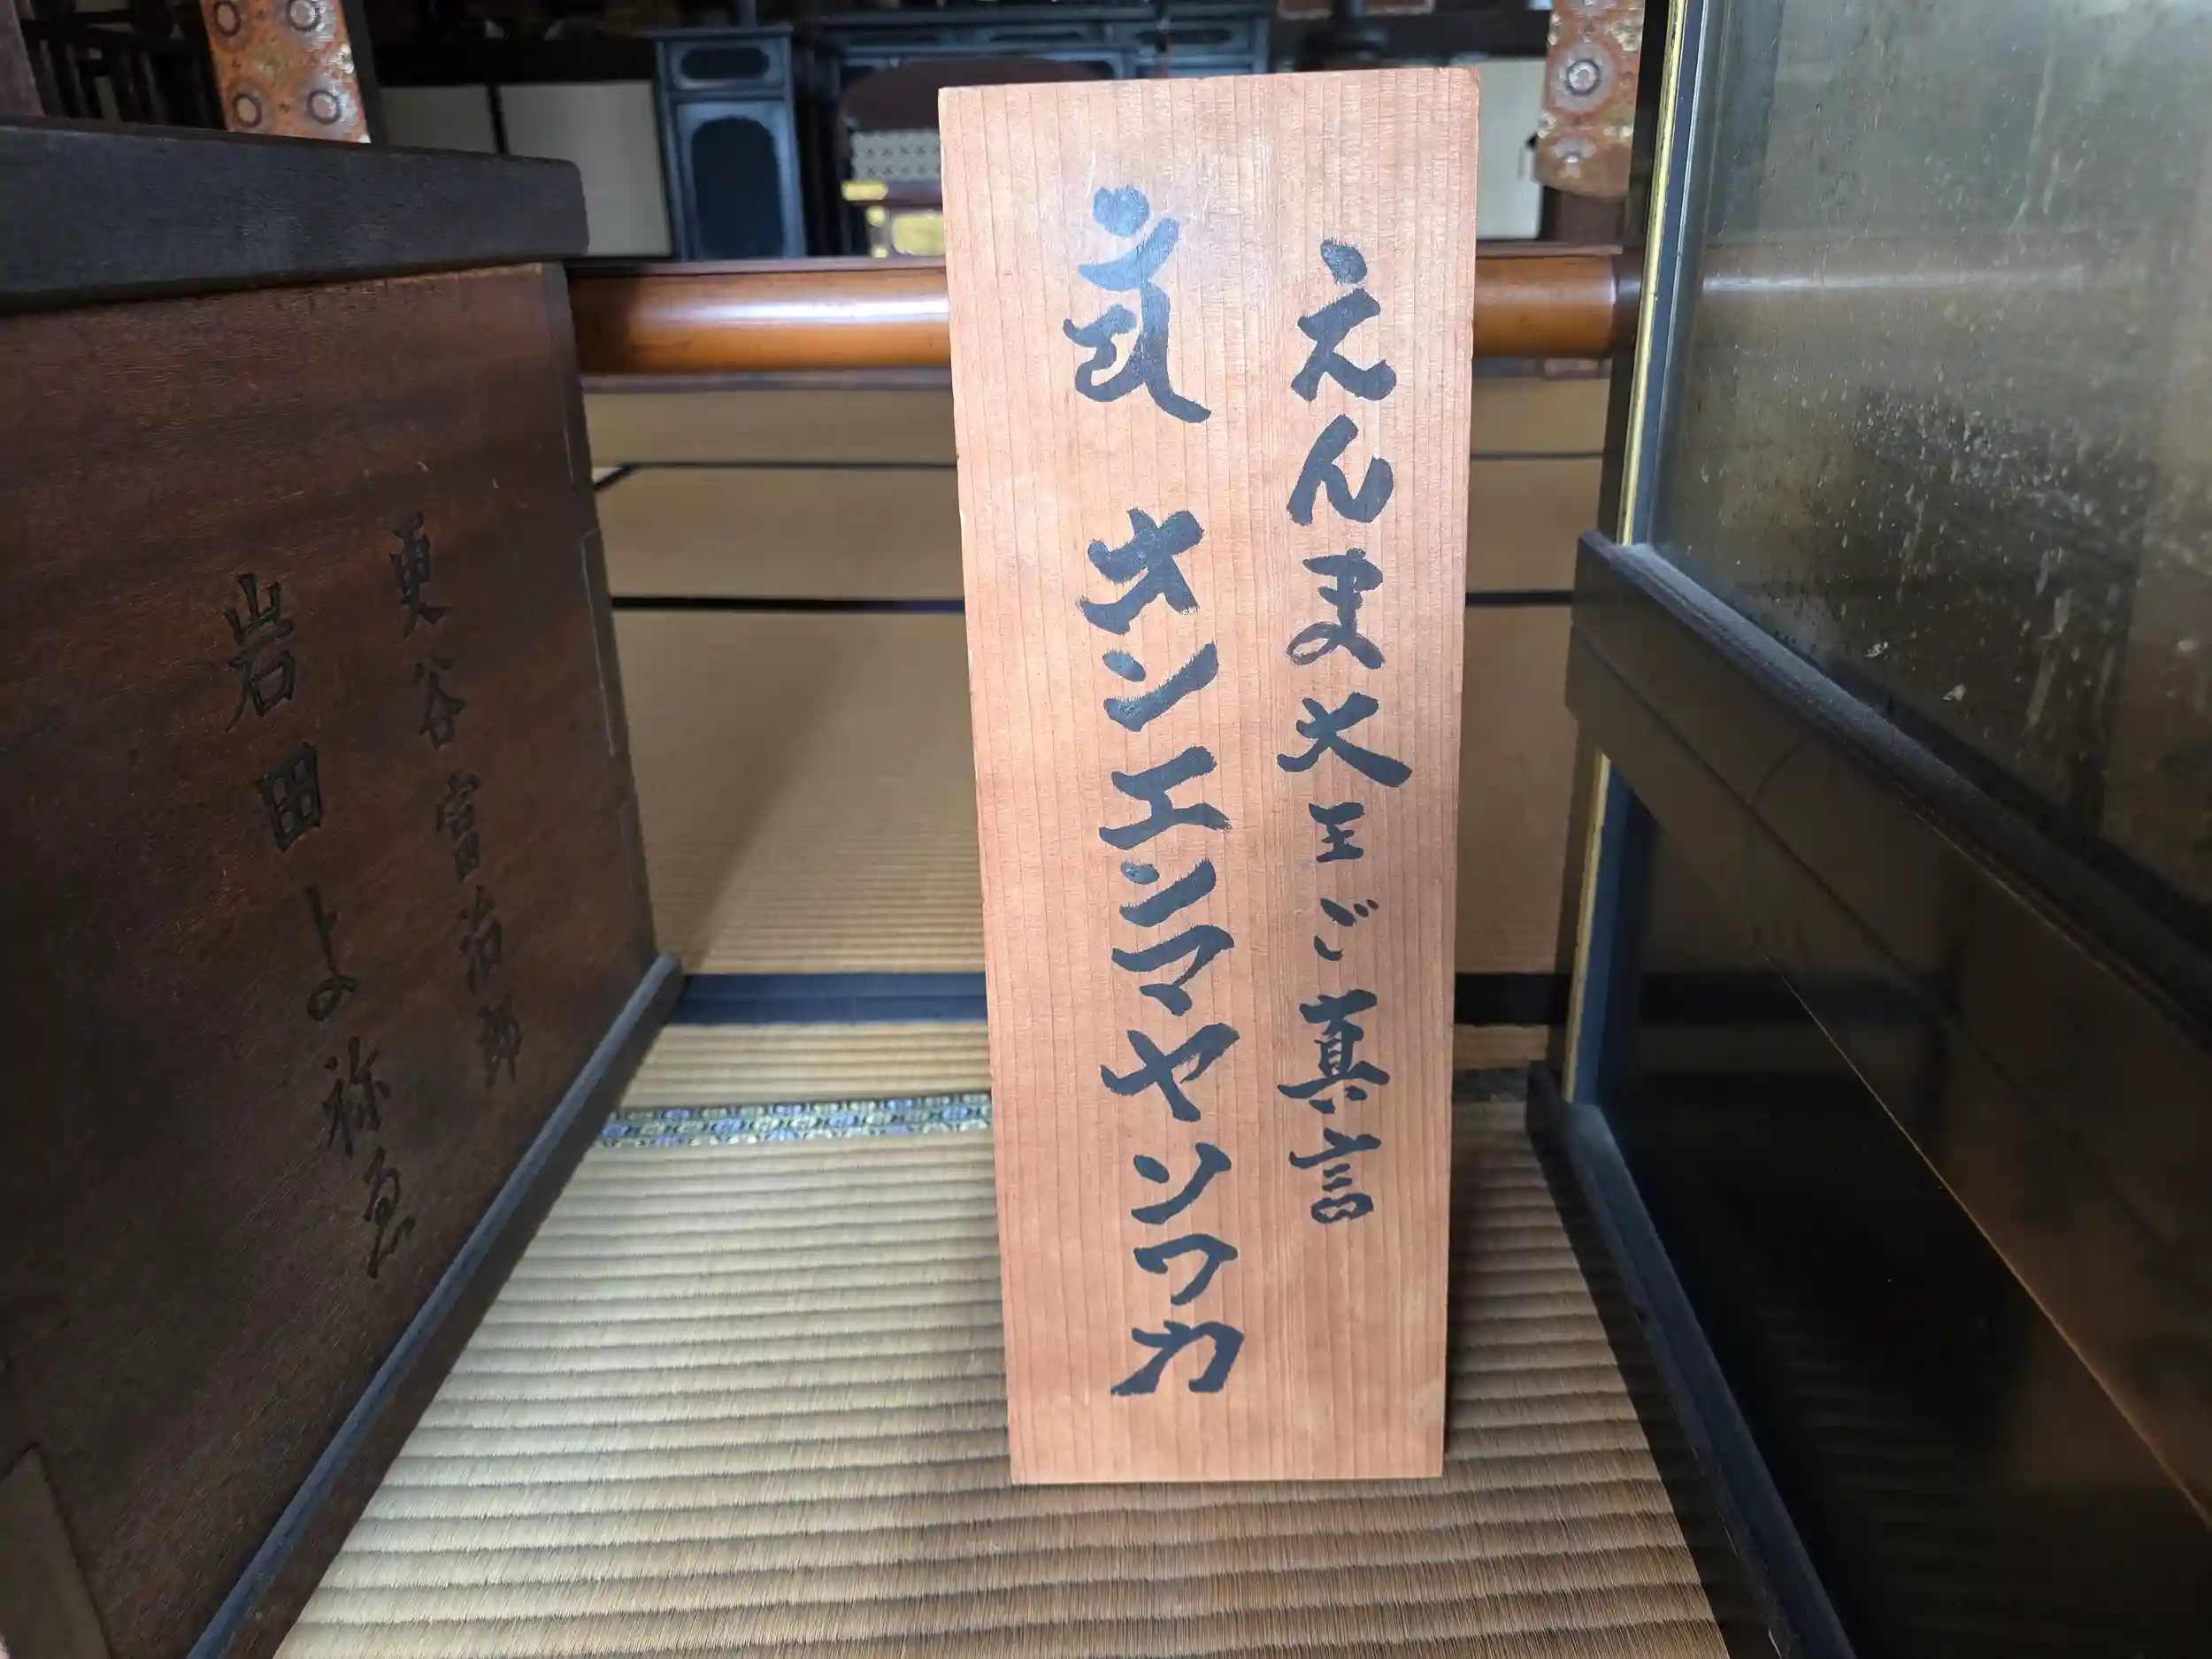 えんま大王ご真言
オンエンマヤソワカ
更谷富治郎
岩田よ祢ゑ